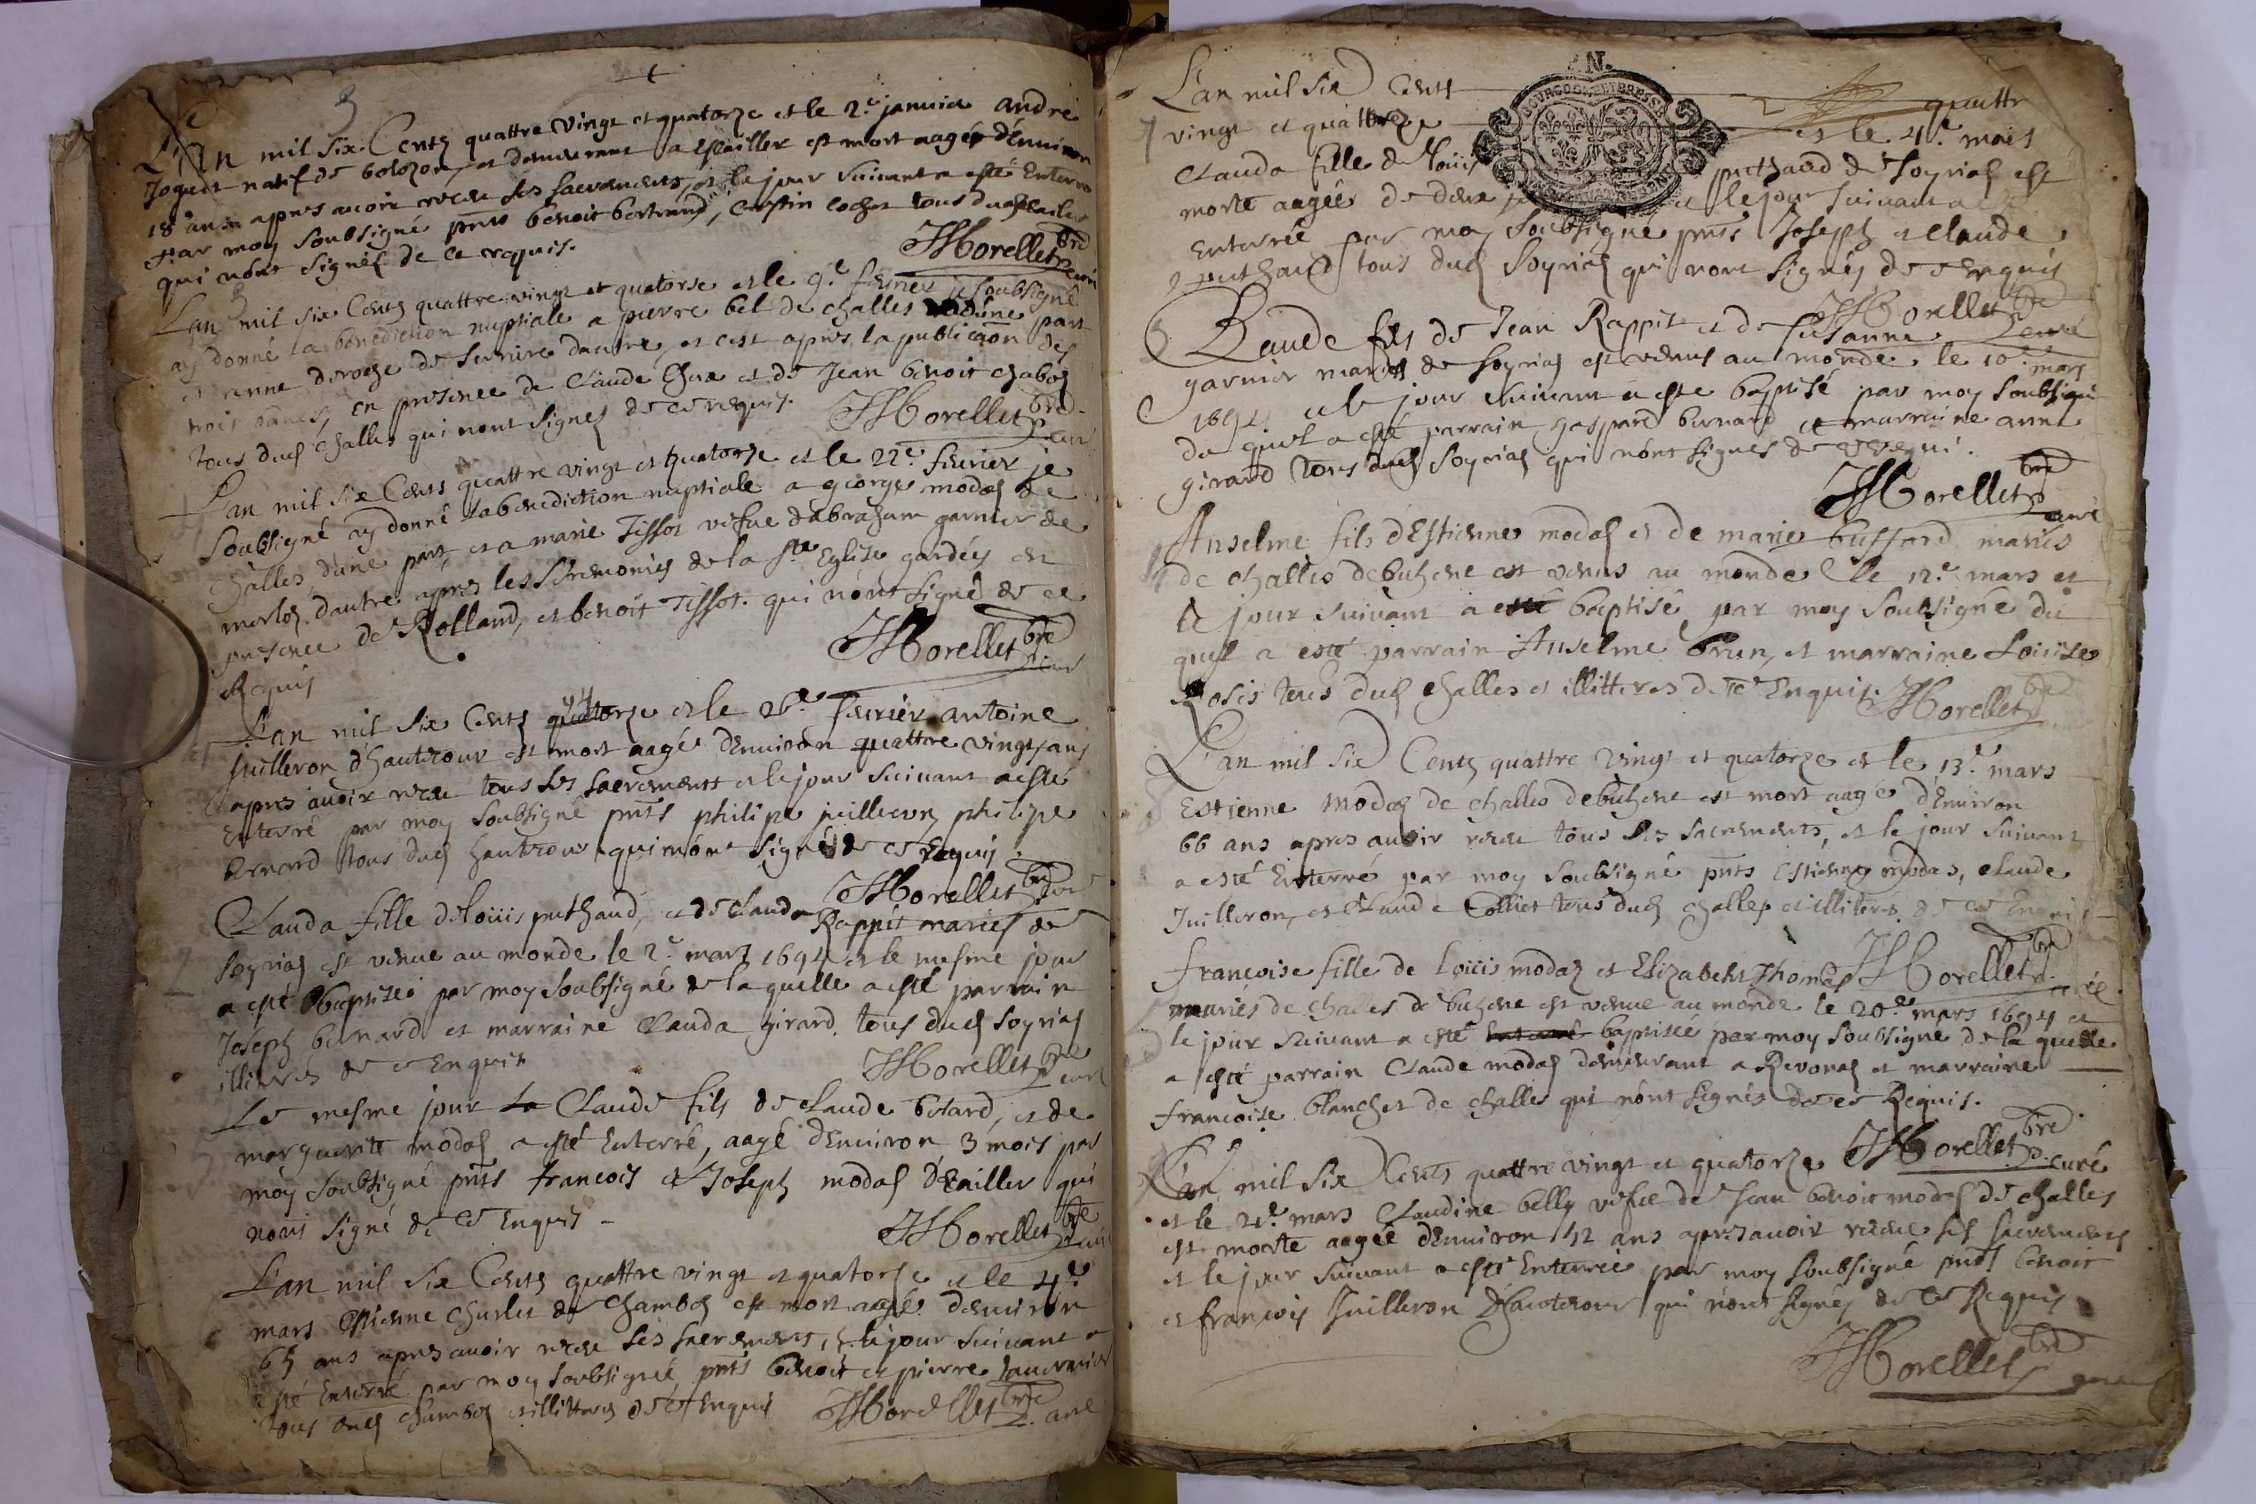 L'an mil six Cents quattre vingt et quatorze et le 2e janvier andré
natif de bolozon, et demeurant a est mort aagé d'Environ
18 ans apres avoir receu ses sacrements, et le jour suivant a esté Enterré
par moy soubsigné pnts benoit bertrand, tous dud
qui n'ont signéz de ce requis.
JMorellet pbre curé
L'an mil six Cents quattre vingt et quatorse et le 9e fevrier je soubsigné
ay donné la benediction nuptiale a pierre bel de challes d'une part
et anne deroche de d'autre, et c'est apres la publicaon des
trois bancs, en presence de Claude et de Jean benoit chabod
tous dud challes qui n'ont signez de ce requis.
JMorellet pbre curé
L'an mil six Cents quattre vingt et quatorze et le 22e fevrier je
soubsigné ay donné la benediction nuptiale a george modas de
Challes d'une part et a marie Tissot vefve d'abraham garnier de
d'autre apres les seremonies de la ste Eglise gardées en
presence de Rolland, et benoit Tissot qui n'ont signé de ce
Requis
JMorellet pbre curé
L'an mil six Cents 94 quatorze et le 26e fevrier antoine
Juilleron d'hautrour est mort aagé d'Environ quattre vingts ans
apres avoir receu tous ses sacrements et le jour suivant a esté
Enterré par moy soubsigné pnts philipe juilleron, philipe
bernard tous dud hautrour qui n'ont signé de ce Requis
JMorellet pbre curé
Clauda fille de loüis puthaud, et de clauda Rappit mariés de
soyrias est venue au monde le 2e mars 1694 et le mesme jour
a esté baptisée par moy soubsigné de laquelle a esté parrain
Joseph bernard et marraine Clauda girard tous dud soyrias
illiteres de ce Enquis
JMorellet pbre curé
Le mesme jour Claude fils de claude botard, et de
marguerite modas a esté Enterré, aagé d'Environ 3 mois par
moy soubsigné pnts francois et Joseph modas qui
n'ont signé de ce Enquis
JMorellet pbre curé
L'an mil six Cents quattre vingt et quatorse et le 4e
mars Estienne de Chambos est mort aagé d'environ
65 ans apres avoir receu ses sacrements, et le jour suivant a
esté Enterré par moy soubsigné pnts benoit et pierre
tous dud Chambos et illitteres de ce Enquis
JMorellet pbre curé
L'an mil six Cents quattre
vingt et quattorze et le 4e mars
Clauda fille de Loüis puthaud de Soyrias est
morte aagée de deux et le jour suivant a
Enterrée par moy soubsigné pnts Joseph et claude
puthaud tous dud Soyrias qui n'ont signéz de ce Enquis
JMorellet pbre curé
Claude fils de Jean Rappit et de susanne
garnier mariés de soyrias est venus au monde le 10e mars
1694 et le jour suivant a esté baptisé par moy soubsigné
du quel a esté parrain gaspard bernard et marraine anne
girard tous dud Soyrias qui n'ont signés de ce requi.
JMorellet pbre curé
Anselme fils d'Estienne modas et de marie buffard mariés
de challes debuhene est venus au monde le 12e mars et
le jour suivant a esté baptisé, par moy soubsigné du
quel a esté parrain Anselme brun, et marraine Loüise
tous dud challes et illitteres de ce Enquis.
JMorellet pbre
L'an mil six Cents quattre vingt et quatorze et le 13e mars
Estienne modas de challes debuhene est mort aagé d'Environ
66 ans apres avoir receu tous ses sacrements, et le jour suivant
a esté Enterré par moy soubsigné pnts Estienne modas, claude
Juilleron, et Claude Colliet tous dud challes et illiteres de ce Enquis
JMorellet pbre curé
francoise fille de loüis modas et Elizabeht Thomas
mariés de challes de buhene est venue au monde le 20e mars 1694 et
le jour suivant a esté Enterré baptisée par moy soubsigné de la quelle
a esté parrain Claude modas demeurant a Revonas et marraine
francoise blanchet de challes qui n'ont signés de ce Requis.
JMorellet pbre curé
L'an mil six Cents quattre vingt et quatorze
et le 21e mars Claudine belly vefve de Jean benoit modas de challes
est morte aagée d'Environ 42 ans apres avoir receue ses sacrements
et le jour suivant a esté Enterrée par moy soubsigné pnts benoit
et francois Juilleron d'hautrour qui n'ont signés de ce Requis
JMorellet pbre curé